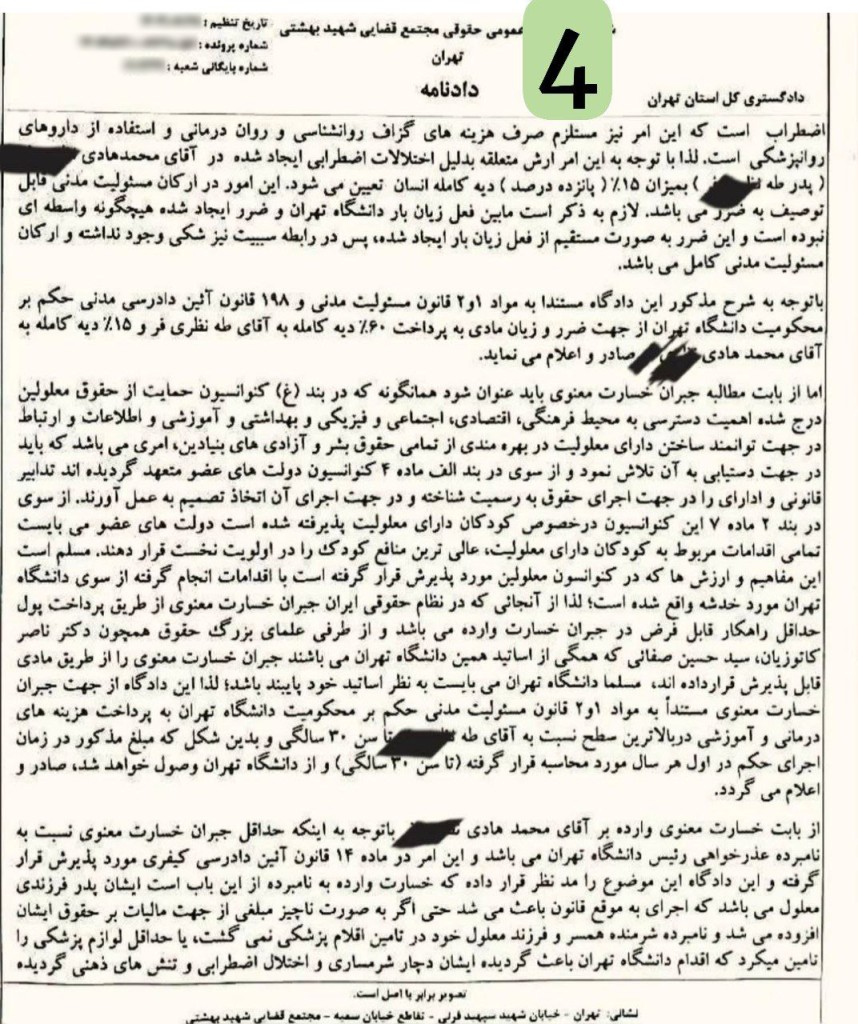 4
عمومی حقوقی مجتمع قضایی شهید بهشتی
تهران
دادنامه
تاریخ تنظیم :
شماره پرونده :
شماره بایگانی شعبه :
دادگستری کل استان تهران
اضطراب است که این امر نیز مستلزم صرف هزینه های گزاف روانشناسی و روان درمانی و استفاده از داروهای
روانپزشکی است. لذا با توجه به این امر ارش متعلقه بدلیل اختلالات اضطرابی ایجاد شده در آقای محمدهادی
( پدر طه ) بمیزان ۱۵٪ ( پانزده درصد ) دیه کامله انسان تعیین می شود. این امور در ارکان مسئولیت مدنی قابل
توصیف به ضرر می باشد. لازم به ذکر است مابین فعل زیان بار دانشگاه تهران و ضرر ایجاد شده هیچگونه واسطه ای
نبوده است و این ضرر به صورت مستقیم از فعل زیان بار ایجاد شده، پس در رابطه سببیت نیز شکی وجود نداشته و ارکان
مسئولیت مدنی کامل می باشد.
باتوجه به شرح مذکور این دادگاه مستندا به مواد ۱و۲ قانون مسئولیت مدنی و ۱۹۸ قانون آئین دادرسی مدنی حکم بر
محکومیت دانشگاه تهران از جهت ضرر و زیان مادی به پرداخت ۶۰٪ دیه کامله به آقای طه نظری فر و ۱۵٪ دیه کامله به
آقای محمد هادی صادر و اعلام می نماید.
اما از بابت مطالبه جبران خسارت معنوی باید عنوان شود همانگونه که در بند (غ) کنوانسیون حمایت از حقوق معلولین
درج شده اهمیت دسترسی به محیط فرهنگی، اقتصادی، اجتماعی و فیزیکی و بهداشتی و آموزشی و اطلاعات و ارتباط
در جهت توانمند ساختن دارای معلولیت در بهره مندی از تمامی حقوق بشر و آزادی های بنیادین، امری می باشد که باید
در جهت دستیابی به آن تلاش نمود و از سوی در بند الف ماده ۴ کنوانسیون دولت های عضو متعهد گردیده اند تدابیر
قانونی و ادارای را در جهت اجرای حقوق به رسمیت شناخته و در جهت اجرای آن اتخاذ تصمیم به عمل آورند. از سوی
در بند ۲ ماده ۷ این کنوانسیون درخصوص کودکان دارای معلولیت پذیرفته شده است دولت های عضو می بایست
تمامی اقدامات مربوط به کودکان دارای معلولیت، عالی ترین منافع کودک را در اولویت نخست قرار دهند. مسلم است
این مفاهیم و ارزش ها که در کنوانسون معلولین مورد پذیرش قرار گرفته است با اقدامات انجام گرفته از سوی دانشگاه
تهران مورد خدشه واقع شده است؛ لذا از آنجائی که در نظام حقوقی ایران جبران خسارت معنوی از طریق پرداخت پول
حداقل راهکار قابل فرض در جبران خسارت وارده می باشد و از طرفی علمای بزرگ حقوق همچون دکتر ناصر
کاتوزیان، سید حسین صفائی که همگی از اساتید همین دانشگاه تهران می باشند جبران خسارت معنوی را از طریق مادی
قابل پذیرش قرارداده اند، مسلما دانشگاه تهران می بایست به نظر اساتید خود پایبند باشد؛ لذا این دادگاه از جهت جبران
خسارت معنوی مستنداً به مواد ۱و۲ قانون مسئولیت مدنی حکم بر محکومیت دانشگاه تهران به پرداخت هزینه های
درمانی و آموزشی دربالاترین سطح نسبت به آقای طه تا سن ۳۰ سالگی و بدین شکل که مبلغ مذکور در زمان
اجرای حکم در اول هر سال مورد محاسبه قرار گرفته (تا سن ۳۰ سالگی) و از دانشگاه تهران وصول خواهد شد، صادر و
اعلام می گردد.
از بابت خسارت معنوی وارده بر آقای محمد هادی باتوجه به اینکه حداقل جبران خسارت معنوی نسبت به
نامبرده عذرخواهی رئیس دانشگاه تهران می باشد و این امر در ماده ۱۴ قانون آئین دادرسی کیفری مورد پذیرش قرار
گرفته و این دادگاه این موضوع را مد نظر قرار داده که خسارت وارده به نامبرده از این باب است ایشان پدر فرزندی
معلول می باشد که اجرای به موقع قانون باعث می شد حتی اگر به صورت ناچیز مبلغی از جهت مالیات بر حقوق ایشان
افزوده می شد و نامبرده شرمنده همسر و فرزند معلول خود در تامین اقلام پزشکی نمی گشت، یا حداقل لوازم پزشکی را
تامین میکرد که اقدام دانشگاه تهران باعث گردیده ایشان دچار شرمساری و اختلال اضطرابی و تنش های ذهنی گردیده
تصویر برابر با اصل است.
نشانی: تهران - خیابان شهید سپهبد قرنی - تقاطع خیابان سمیه - مجتمع قضایی شهید بهشتی